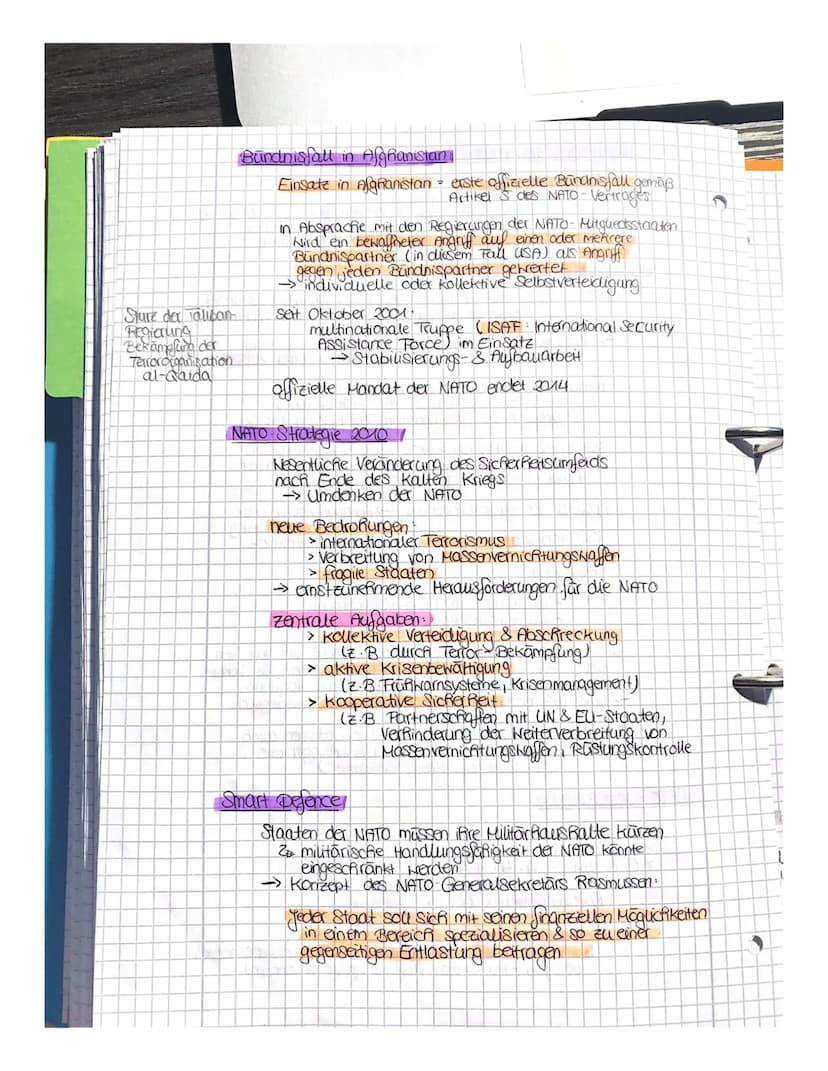 Bündnisfall in Afghanistan
Einsatz in Afghanistan = erste offizielle Bündnisfall gemäß
Artikel 5 des NATO-Vertrages
in Absprache mit den Regierungen der NATO-Mitgliedsstaaten
wird ein bewaffneter Angriff auf einen oder mehrere
Bündnispartner (in diesem Fall USA) als Angriff
gegen jeden Bündnispartner gewertet
→ individuelle oder kollektive Selbstverteidigung
Sturz der Taliban-
Regierung
Bekämpfung der
Terrororganisation
al-Qaida
seit Oktober 2001:
multinationale Truppe (ISAF: International Security
Assistance Force) im Einsatz
→ Stabilisierungs- & Aufbauarbeit
offizielle Mandat der NATO endet 2014
NATO-Strategie 2010
Wesentliche Veränderung des Sicherheitsumfelds
nach Ende des kalten Kriegs
→ Umdenken der NATO
neue Bedrohungen:
> internationaler Terrorismus
> Verbreitung von Massenvernichtungswaffen
> fragile Staaten
→ ernstzunehmende Herausforderungen für die NATO
zentrale Aufgaben:
> kollektive Verteidigung & Abschreckung
(z.B durch Terror-Bekämpfung)
> aktive Krisenbewältigung
(z.B Frühwarnsysteme, Krisenmanagement)
> kooperative Sicherheit
(z.B Partnerschaften mit UN & EU-Staaten,
Verhinderung der Weiterverbreitung von
Massenvernichtungswaffen, Rüstungskontrolle
Smart Defence
Staaten der NATO müssen ihre Militärhaushalte kürzen
↳ militärische Handlungsfähigkeit der NATO könnte
eingeschränkt werden
→ Konzept des NATO-Generalsekretärs Rasmussen:
Jeder Staat soll sich mit seinen finanziellen Möglichkeiten
in einem Bereich spezialisieren & so zu einer
gegenseitigen Entlastung beitragen